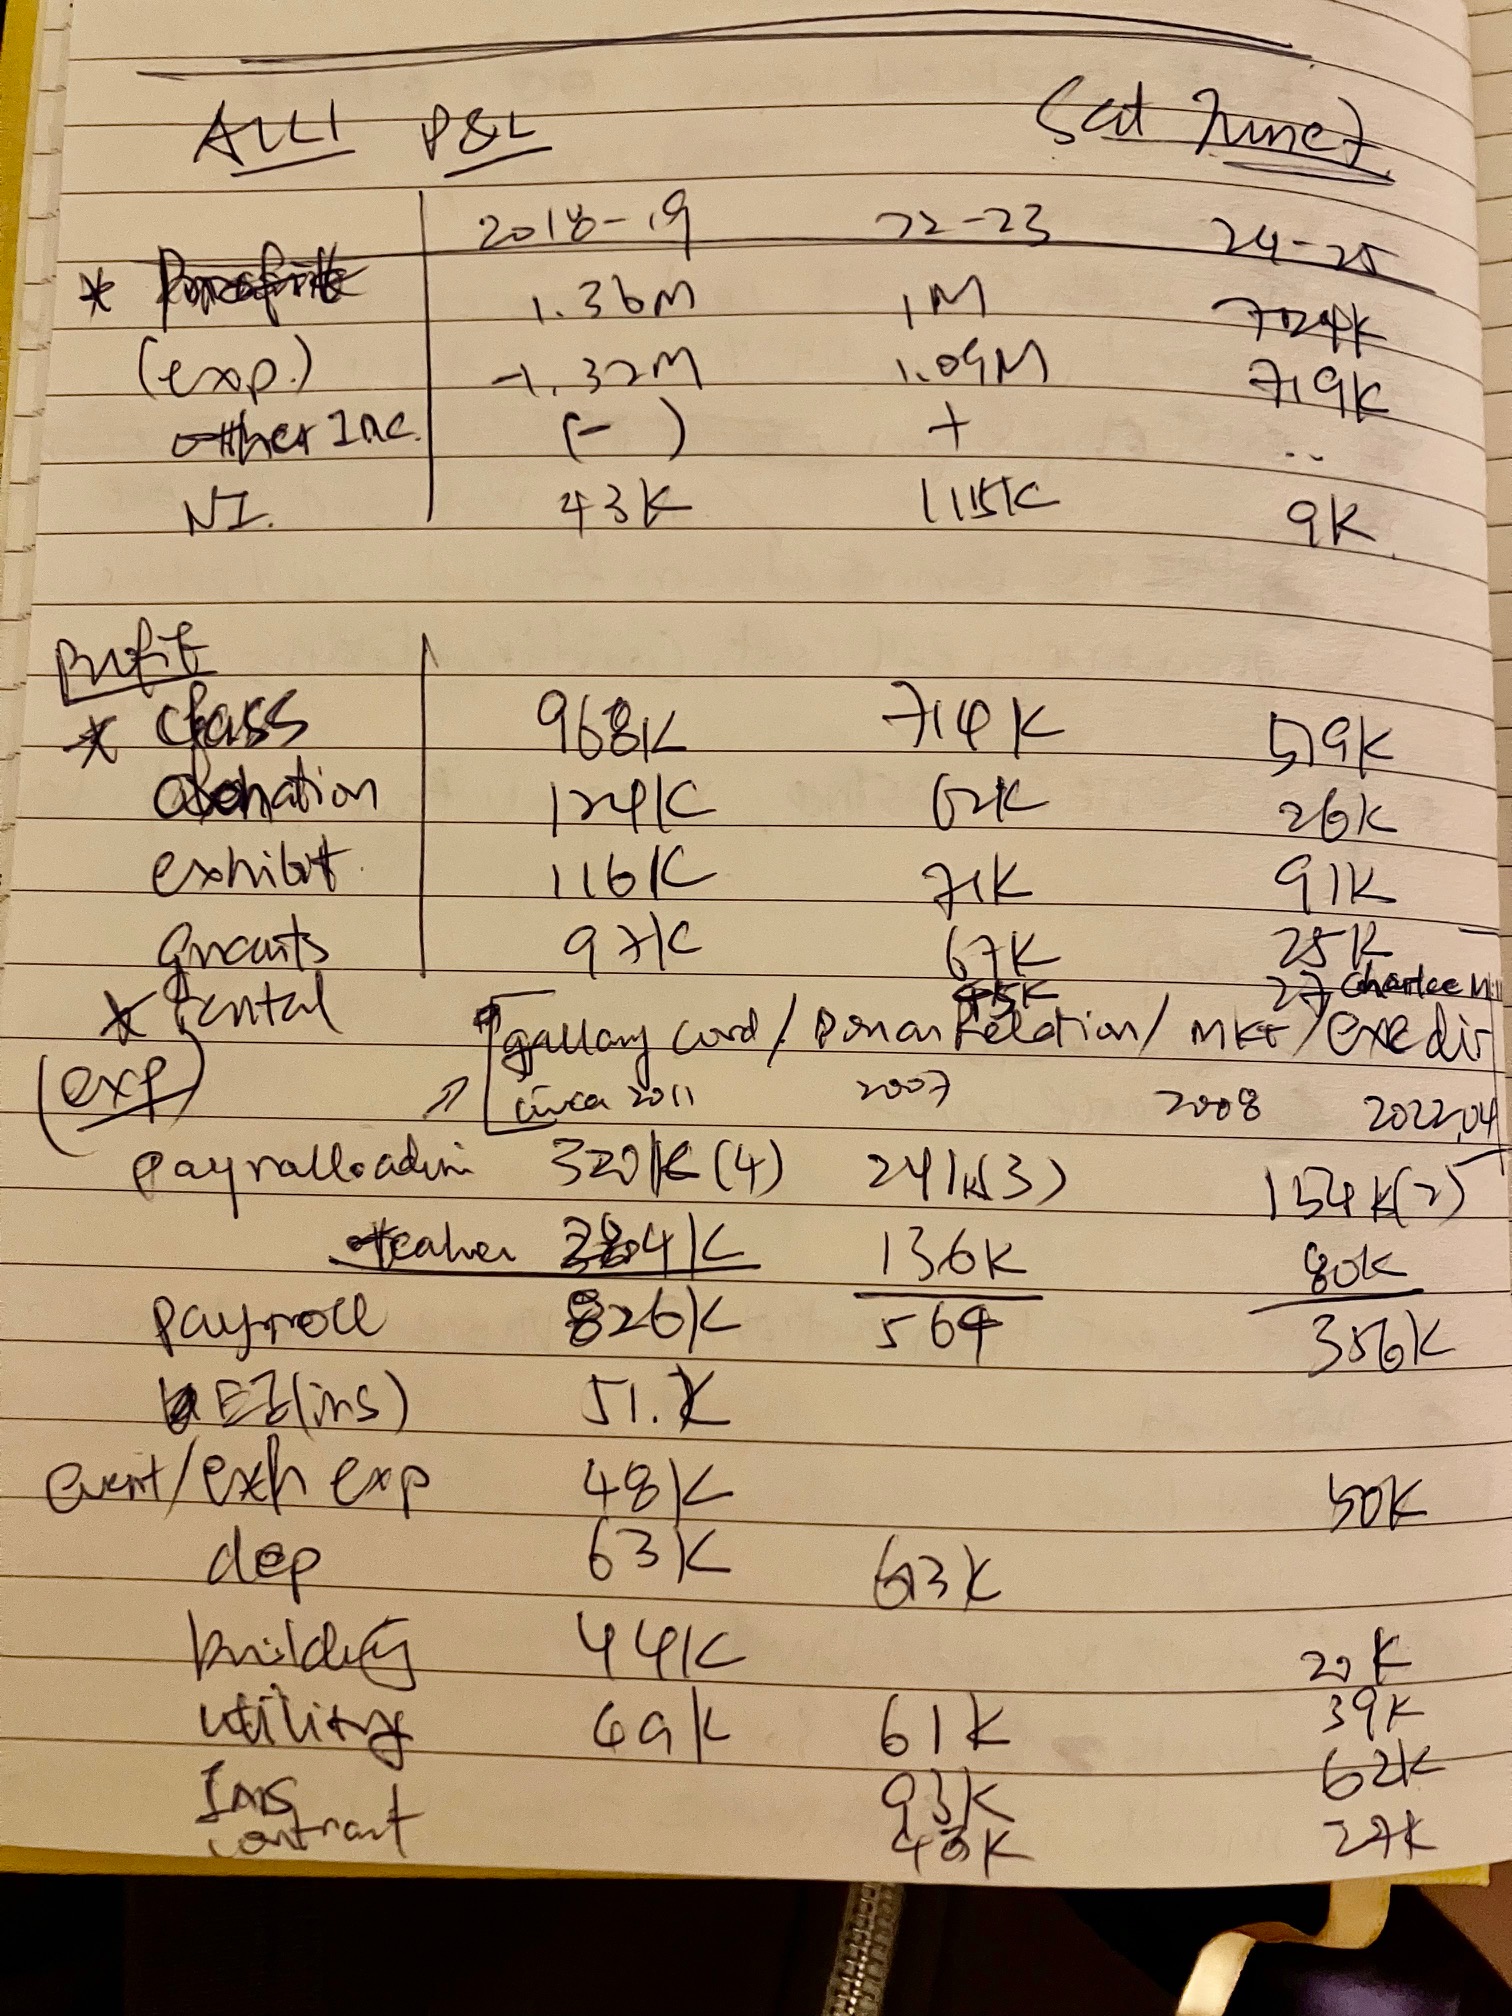 P&L Sat June 7
2018-19 22-23 24-25
* Profit 1.36M 1M 724K
(exp.) -1.32M 1.09M 719K
other Inc. (-) + ..
NI. 43K 115K 9K
Profit
* class 968K 714K 519K
donation 124K 62K 26K
exhibit 116K 71K 91K
Grants 97K 67K 25K
* rental 45K 27
(exp) gallary Cord / Donor Relation / MKT / exe dir
circa 2011 2007 2008 2022.04
320K (4) 241K(3) 154K(2)
teaher 136K 80K
payroll 826K 564 356K
(ins) 51.K
event/exh exp 48K 50K
dep 63K 63K
building 44K 20K
utility 69K 61K 39K
Ins 93K 62K
contract 27K